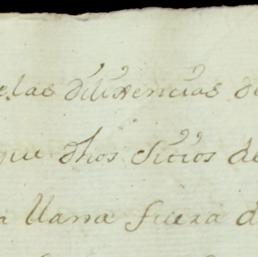 elas dilixencias de
que dhos sitios de
a llana fuera d